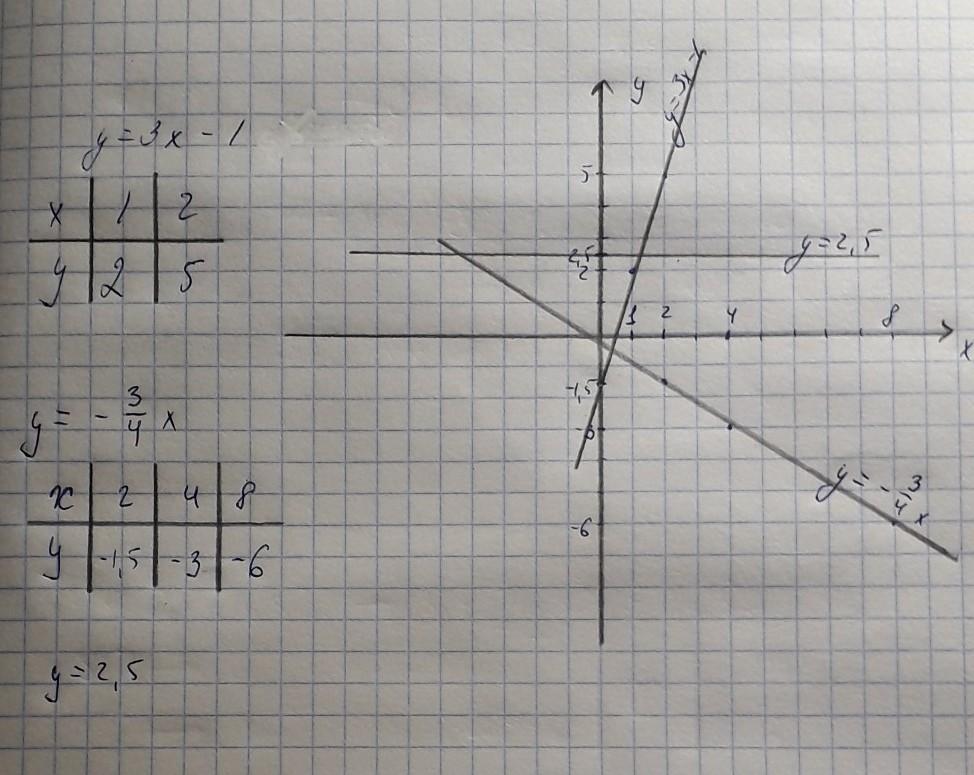 y = 3x - 1
x 1 2
y 2 5
y = - 3/4 x
x 2 4 8
y -1,5 -3 -6
y = 2,5
y
y = 3x - 1
5
y = 2,5
2,5
2
1 2 4 8
x
-1,5
-3
y = - 3/4 x
-6